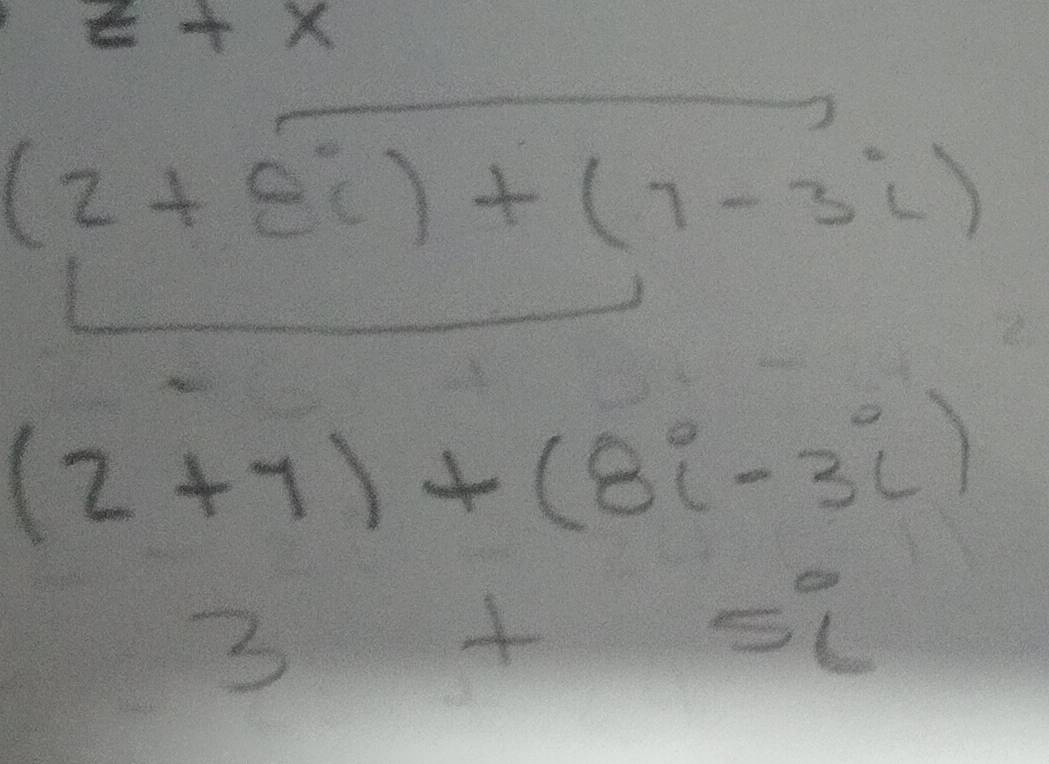 z + x
(2 + 8i) + (1 - 3i)
(2 + 1) + (8i - 3i)
3 + 5i